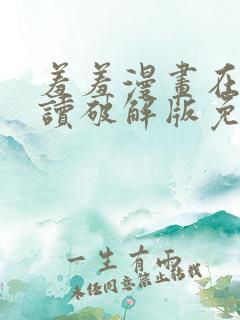 羞羞漫畫在
讀破解版免
一生有雨
未经同意禁止转载